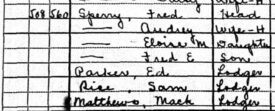 Wife-H
508 560 Sperry, Fred Head
—— Audrey Wife-H
—— Eloise M Daughter
—— Fred E Son
Parker, Ed. Lodger
Rise, Sam Lodger
Matthews, Mack Lodger